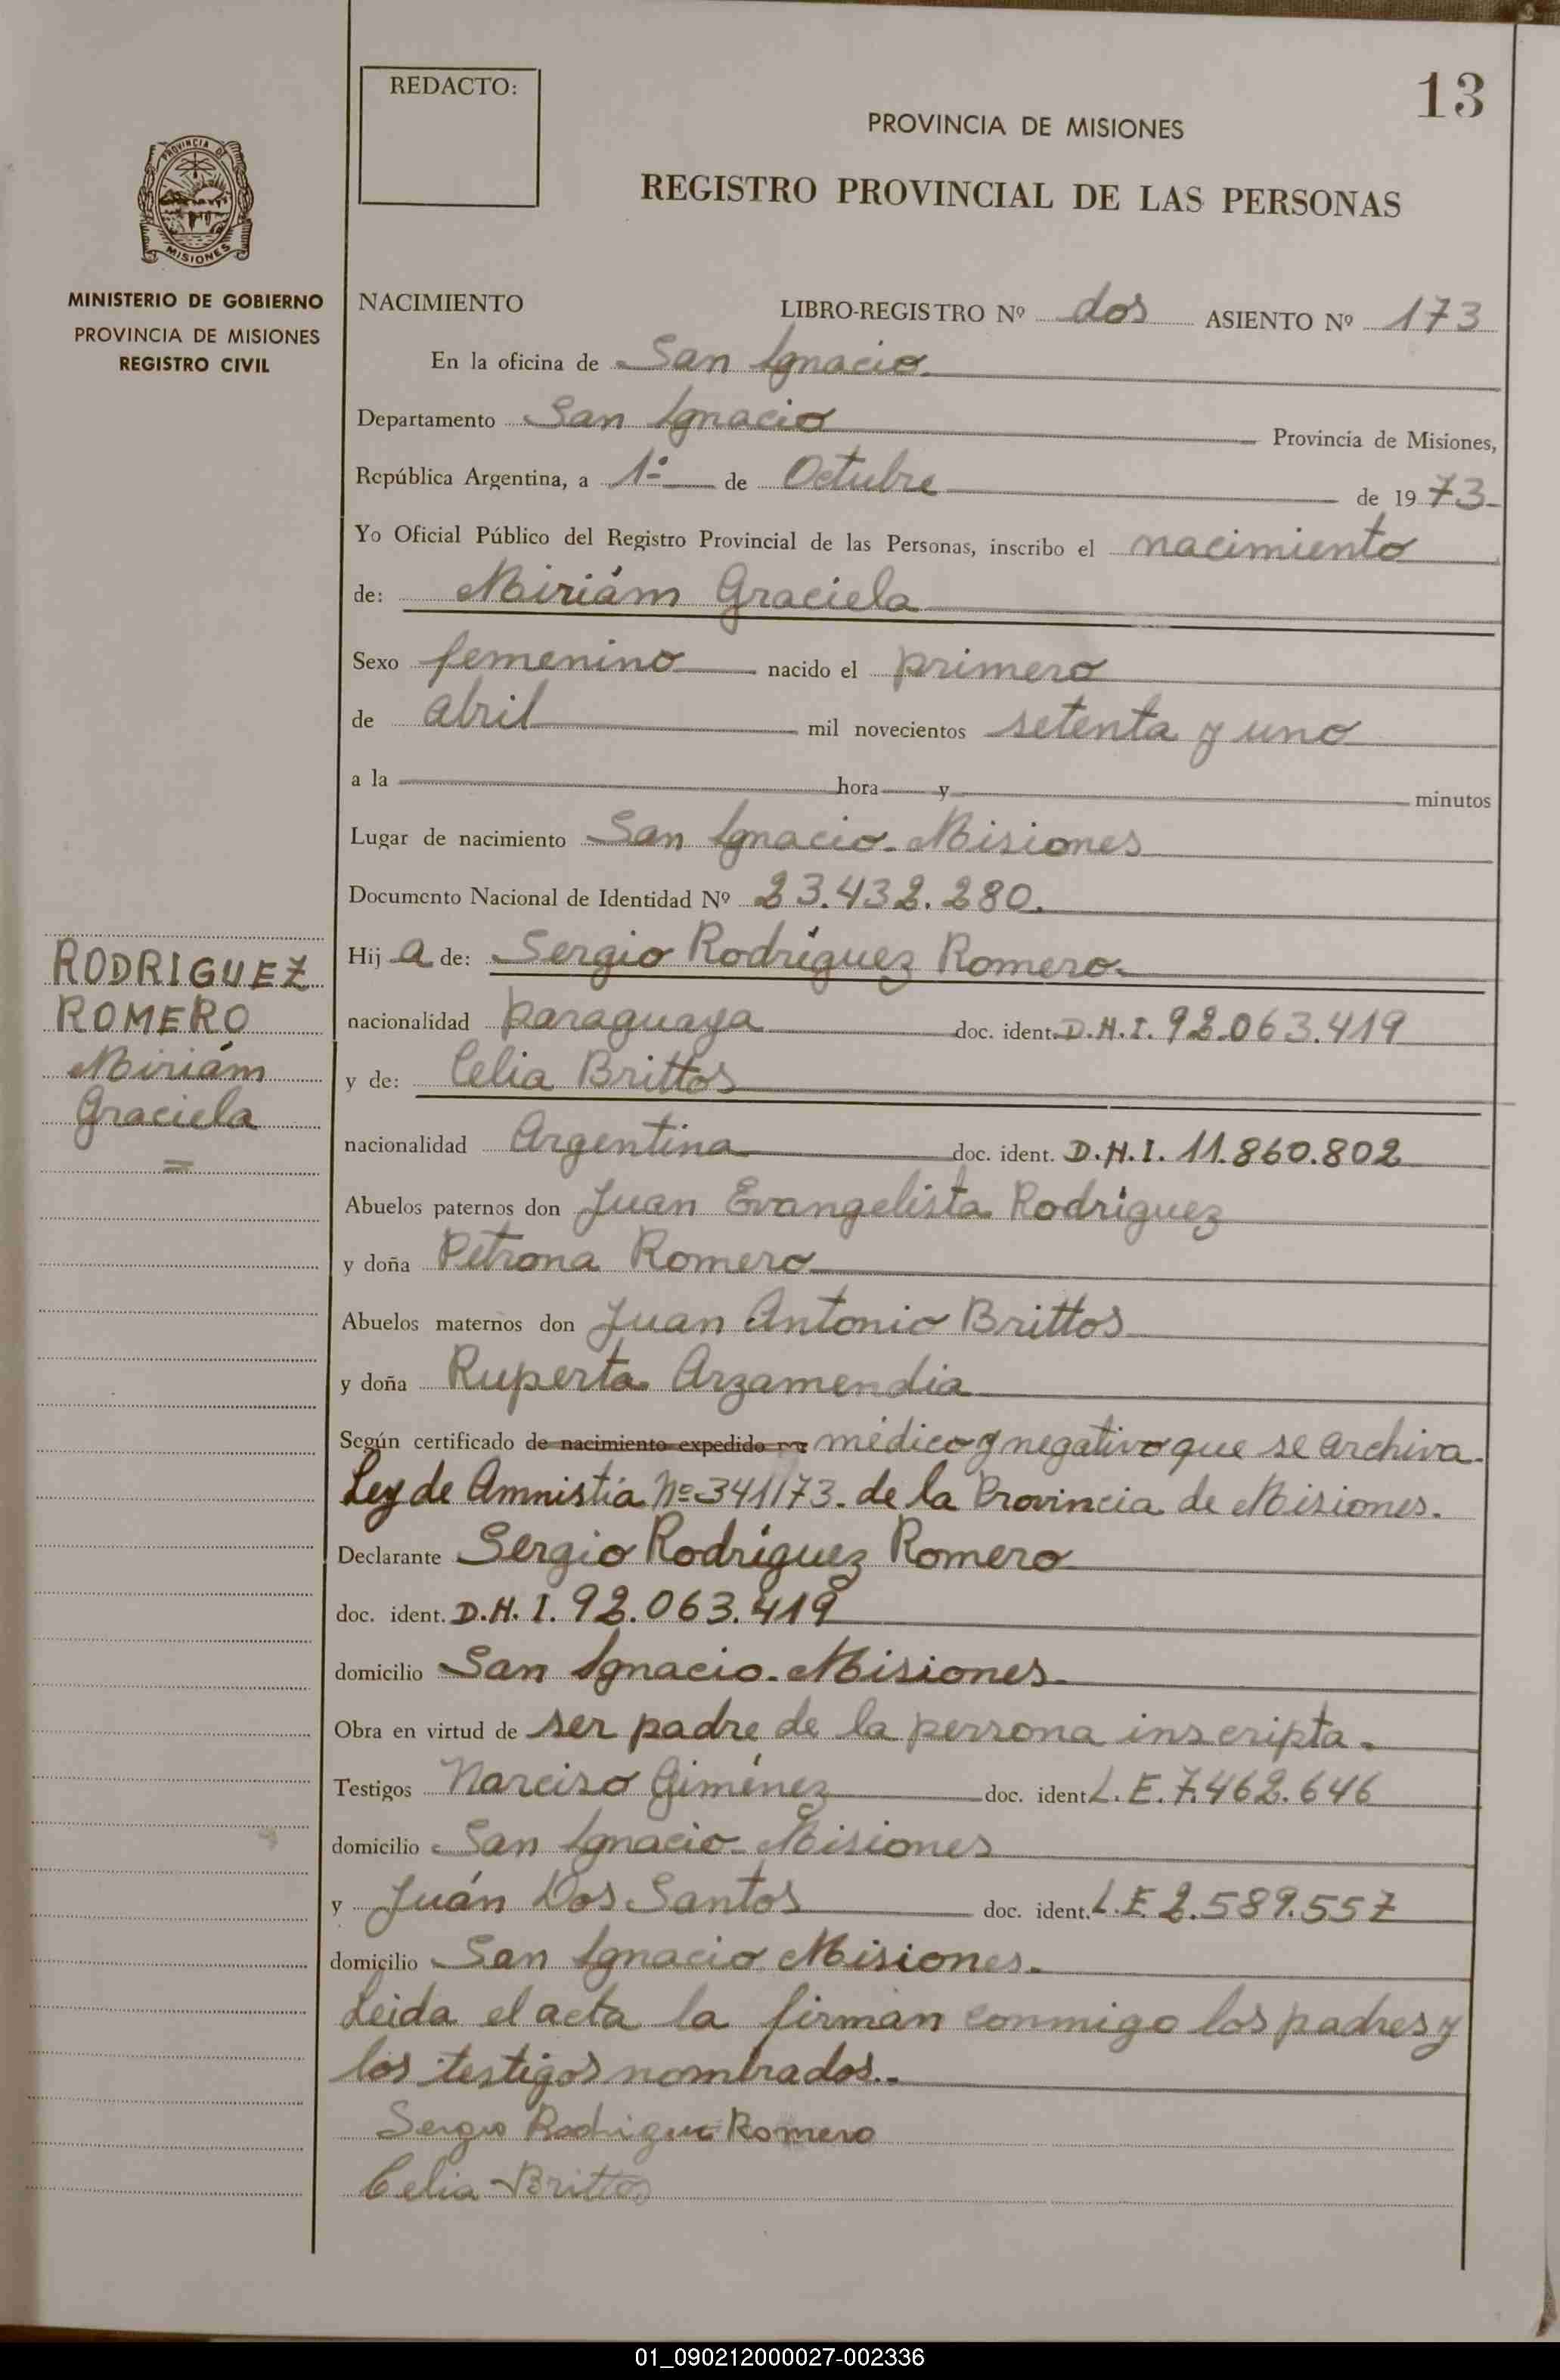 REDACTO:
13
PROVINCIA DE MISIONES
REGISTRO PROVINCIAL DE LAS PERSONAS
PROVINCIA DE
MISIONES
MINISTERIO DE GOBIERNO
PROVINCIA DE MISIONES
REGISTRO CIVIL
NACIMIENTO LIBRO-REGISTRO Nº dos ASIENTO Nº 173
En la oficina de San Ignacio
Departamento San Ignacio Provincia de Misiones,
República Argentina, a 1º de Octubre de 1973
Yo Oficial Público del Registro Provincial de las Personas, inscribo el nacimiento
de: Miriám Graciela
Sexo femenino nacido el primero
de abril mil novecientos setenta y uno
a la hora y minutos
Lugar de nacimiento San Ignacio. Misiones
Documento Nacional de Identidad Nº 23.432.280.
RODRIGUEZ
ROMERO
Miriám
Graciela
Hij a de: Sergio Rodríguez Romero
nacionalidad paraguaya doc. ident. D.N.I. 92.063.419
y de: Celia Brittos
nacionalidad Argentina doc. ident. D.N.I. 11.860.802
Abuelos paternos don Juan Evangelista Rodríguez
y doña Petrona Romero
Abuelos maternos don Juan Antonio Brittos
y doña Ruperta Arzamendia
Según certificado de nacimiento expedido por médico y negativo que se archiva.
Ley de Amnistía Nº 341/73. de la Provincia de Misiones.
Declarante Sergio Rodríguez Romero
doc. ident. D.N.I. 92.063.419
domicilio San Ignacio. Misiones
Obra en virtud de ser padre de la persona inscripta.
Testigos Narciso Giménez doc. ident. L.E. 7.462.646
domicilio San Ignacio. Misiones
y Juán Dos Santos doc. ident. L.E. 2.589.557
domicilio San Ignacio Misiones.
Leida el acta la firman conmigo los padres y
los testigos nombrados..
Sergio Rodrigue Romero
Celia Brittos
01_090212000027-002336